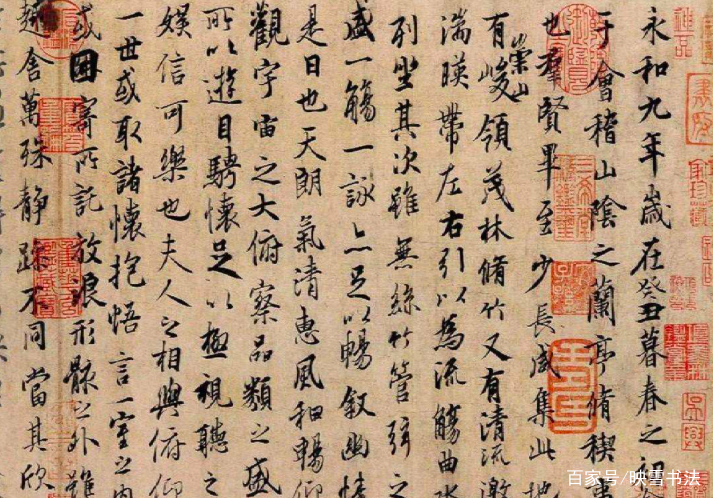 永和九年歲在癸丑暮春之初
于會稽山陰之蘭亭脩稧事
也羣賢畢至少長咸集此地
有崇山峻領茂林脩竹又有清流激
湍暎帶左右引以為流觴曲水
列坐其次雖無絲竹管弦之
盛一觴一詠亦足以暢敘幽情
是日也天朗氣清惠風和暢仰
觀宇宙之大俯察品類之盛
所以遊目騁懷足以極視聽之
娛信可樂也夫人之相與俯仰
一世或取諸懷抱悟言一室之內
或因寄所託放浪形骸之外雖
趣舍萬殊靜躁不同當其欣
百家号/映雪书法